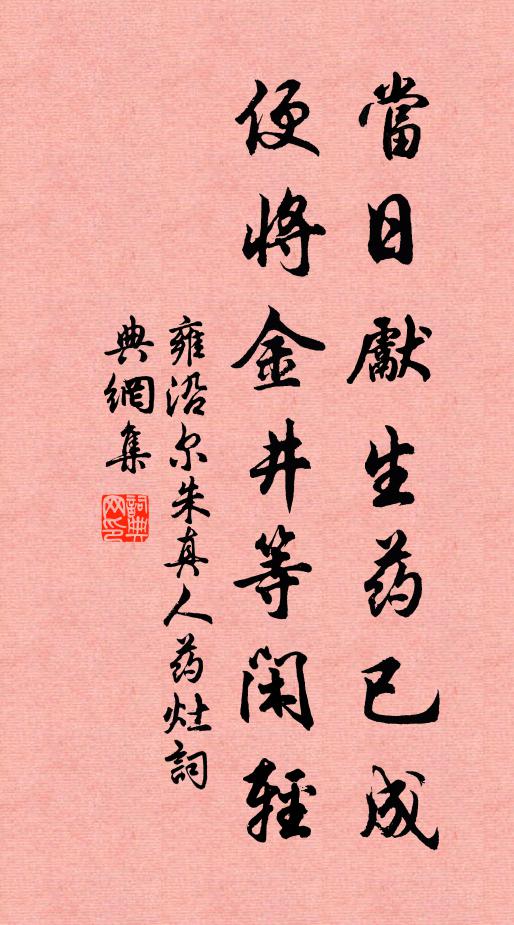 當日獻生药已成
便將金井等閑輕
雍沿尔朱真人药灶詞
典網集
詞典网印